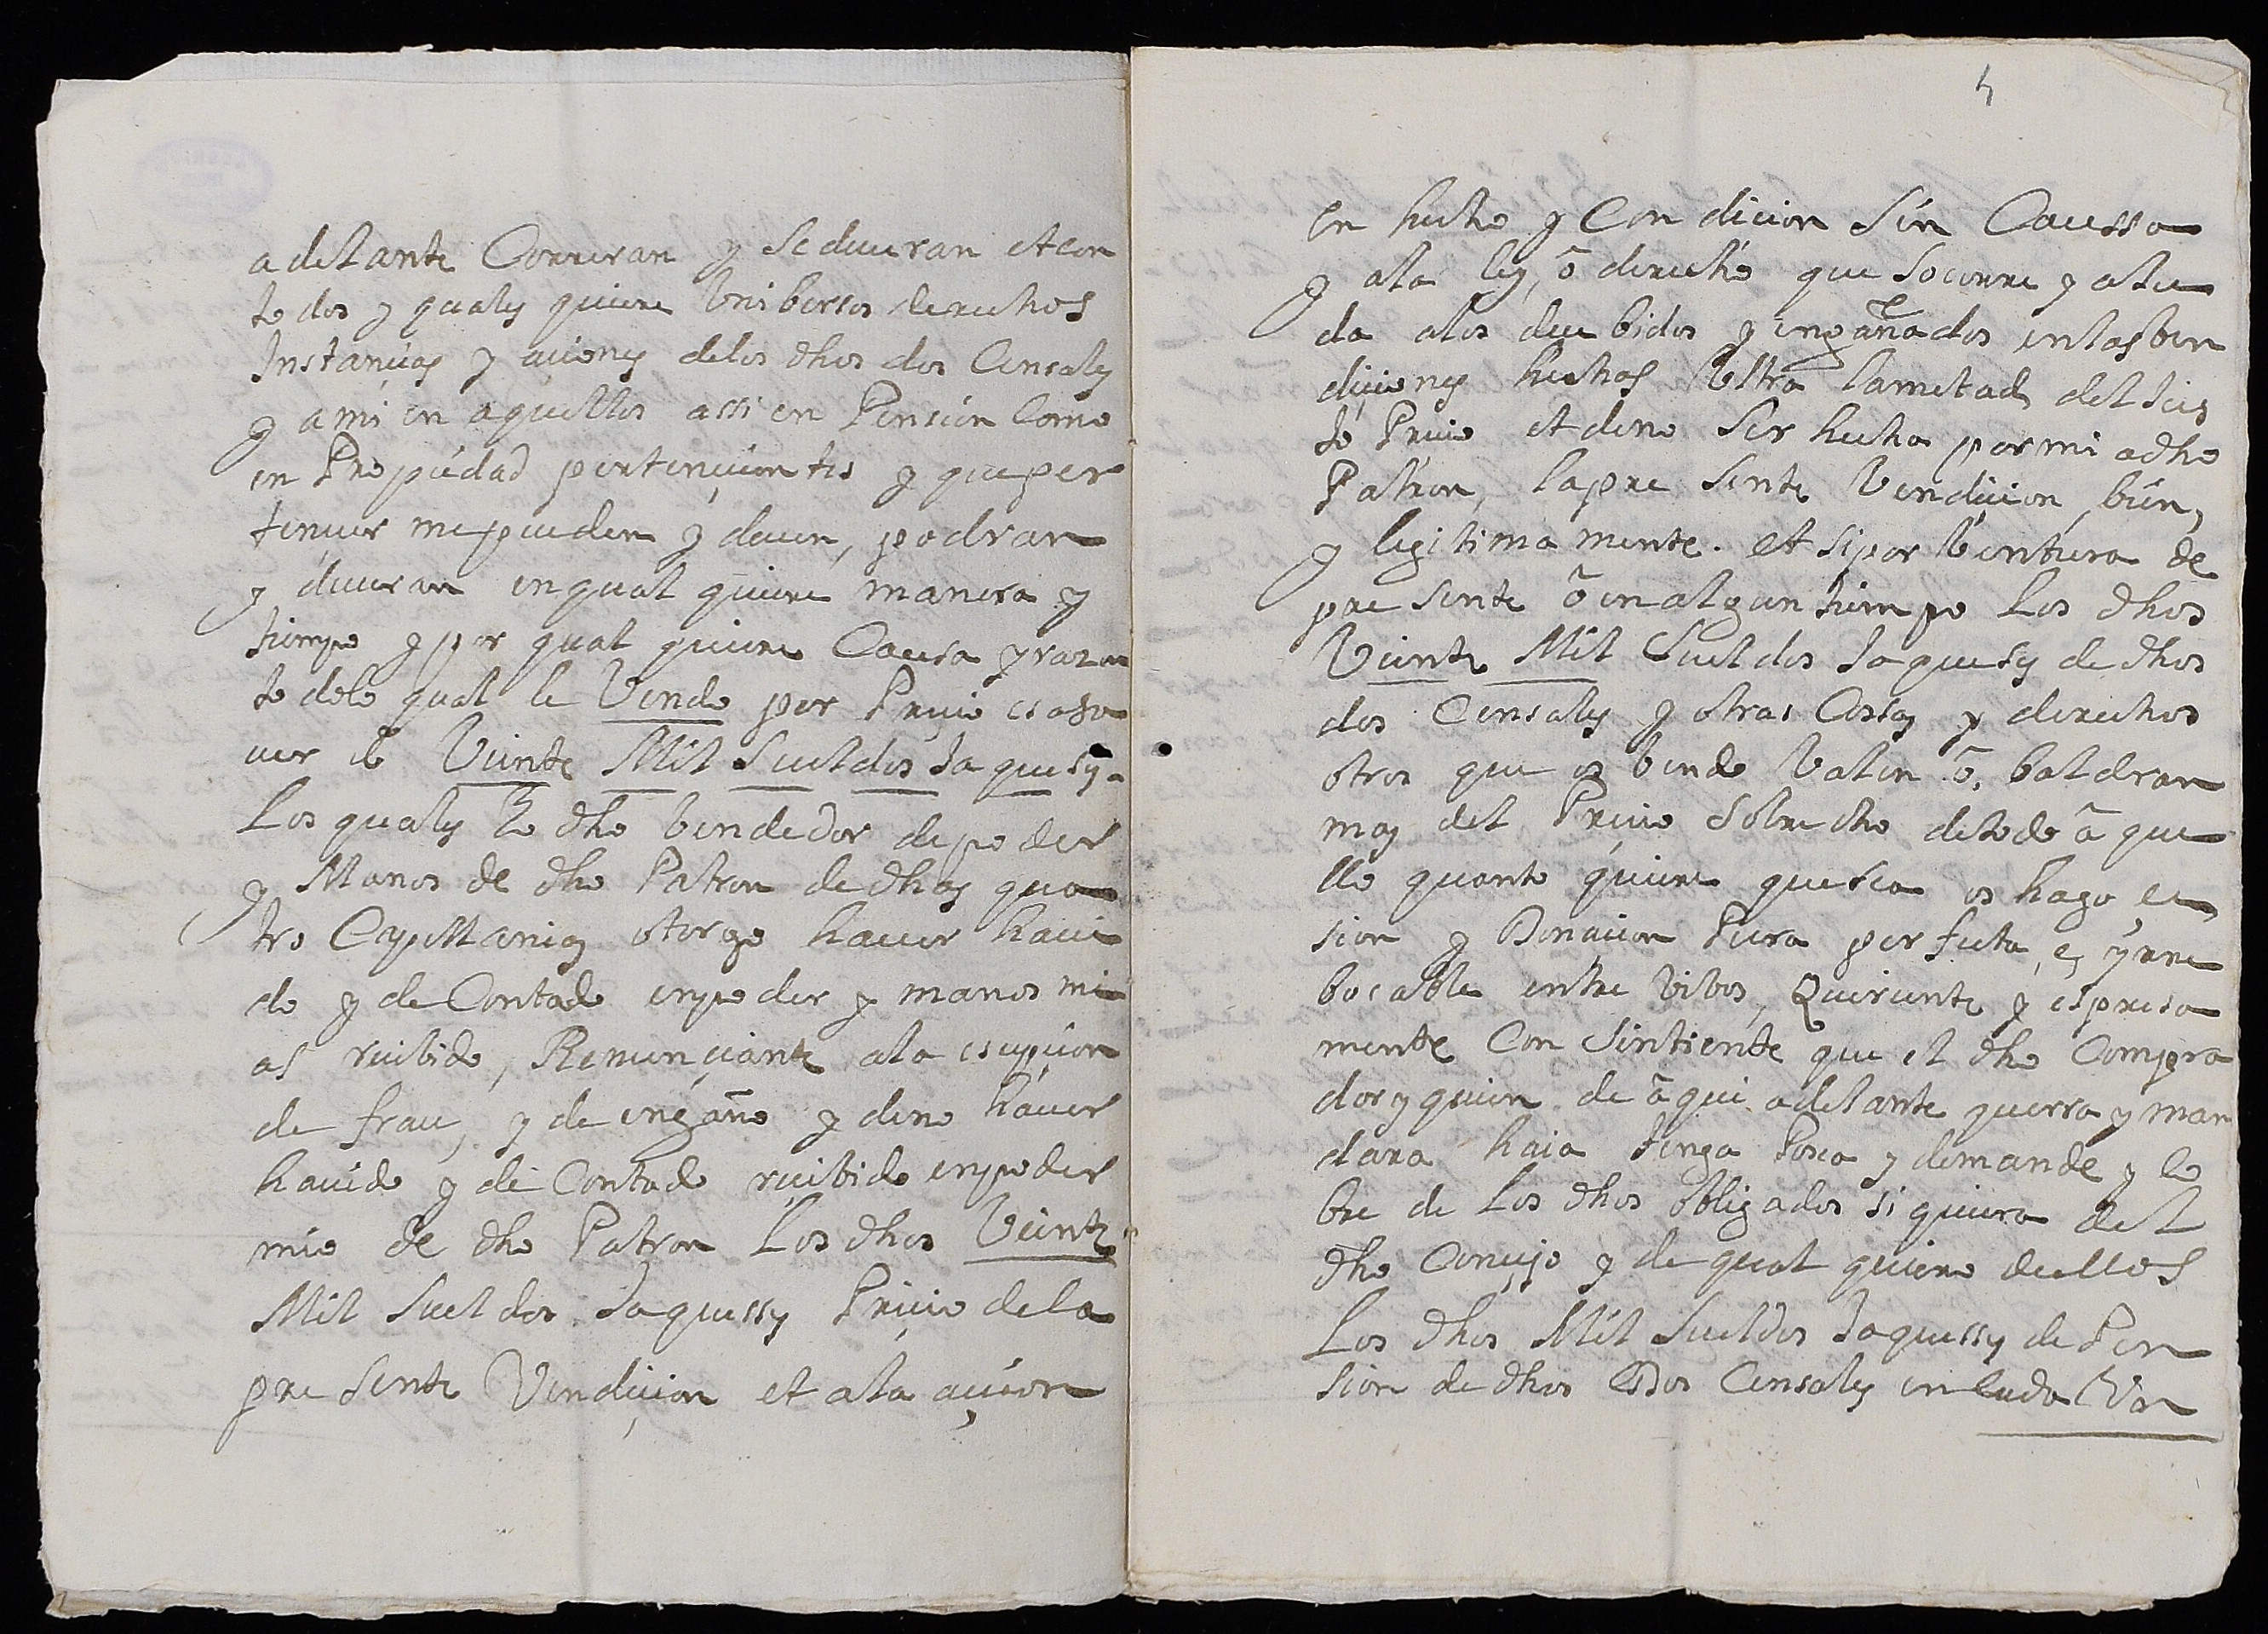 adelante Correran y Se deueran et con
todos y quales quiere Vnibersos derechos
Instancias y aciones delos dhos dos Censales
y a mi en aquellos assi en Pension Como
en Propiedad pertenecientes y que per
tenecer me pueden y deuen, podran
y deueran en qual quiere manera y
tiempo y por qual quiere Causa y razon
todo lo qual le Vendo por Precio es a sa
uer de Veinte Mil Sueldos Jaqueses
Los quales Yo dho bendedor de poder
y Manos de dho Patron de dhas qua
tro Capellanias otorgo hauer haui
do y de Contado en poder y manos mi
as recibido, Renunciante ala escepcion
de frau, y de engaño y de no hauer
hauido y de Contado recibido en poder
mio de dho Patron Los dhos Veinte
Mil Sueldos Jaquesses Precio dela
pre sente Vendicion et ala acion
4
en hecho y Con dicion Sin Caussa
y ala ley, ô derecho que Socorre y aiu
da alos decebidos y engañados en las ben
diciones hechas Vltra la mitad del Jus
to Precio et de no Ser hecha por mi a dho
Patron, la pre Sente Vendicion, bien,
y legitima mente. et si por Ventura de
pre Sente ô en algun tiempo Los dhos
Veinte Mil Sueldos Jaqueses de dhos
dos Censales y otras Cosas y derechos
otros que os bendo Valen ô, baldran
mas del Precio Sobre dho de todo â que
llo quanto quiere que sea os hago ce
sion y Donacion Pura perfecta, e, yrre
bocable entre Vibos, Queriente y espresa
mente Con Sintiente que el dho Compra
dor y quien de â qui adelante querra y man
dara haia tenga Posea y demande y co
bre de Los dhos obligados si quiere del
dho Concejo y de qual quiere de ellos
Los dhos Mil Sueldos Jaquesses de Pen
sion de dhos Dos Censales en Cada Vn